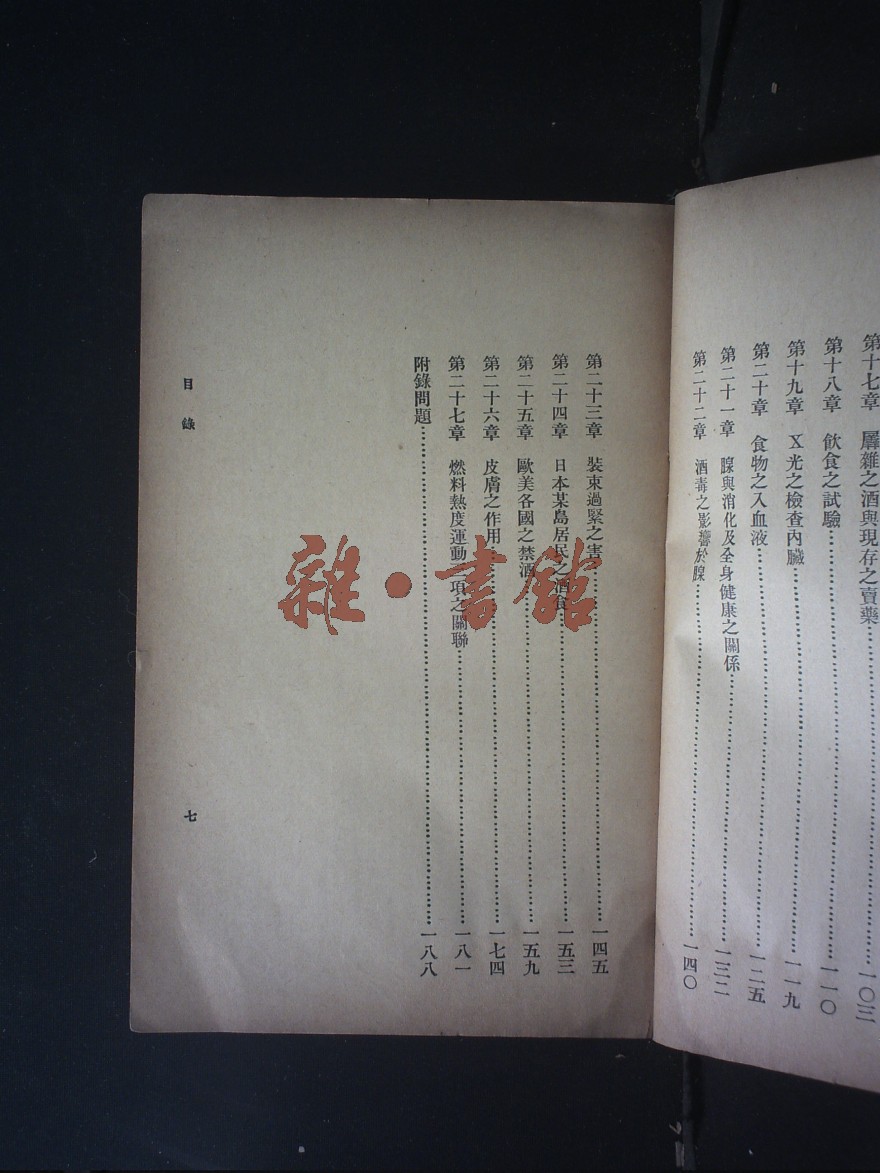 第十七章　羼雜之酒與現存之賣藥……一〇三
第十八章　飲食之試驗……一一〇
第十九章　X光之檢查內臟……一一九
第二十章　食物之入血液……一二五
第二十一章　腺與消化及全身健康之關係……一三二
第二十二章　酒毒之影響於腺……一四〇
第二十三章　裝束過緊之害……一四五
第二十四章　日本某島居民之酒食……一五三
第二十五章　歐美各國之禁酒……一五九
第二十六章　皮膚之作用……一七四
第二十七章　燃料熱度運動三項之關聯……一八一
附錄問題……一八八
目錄
七
雜·書館